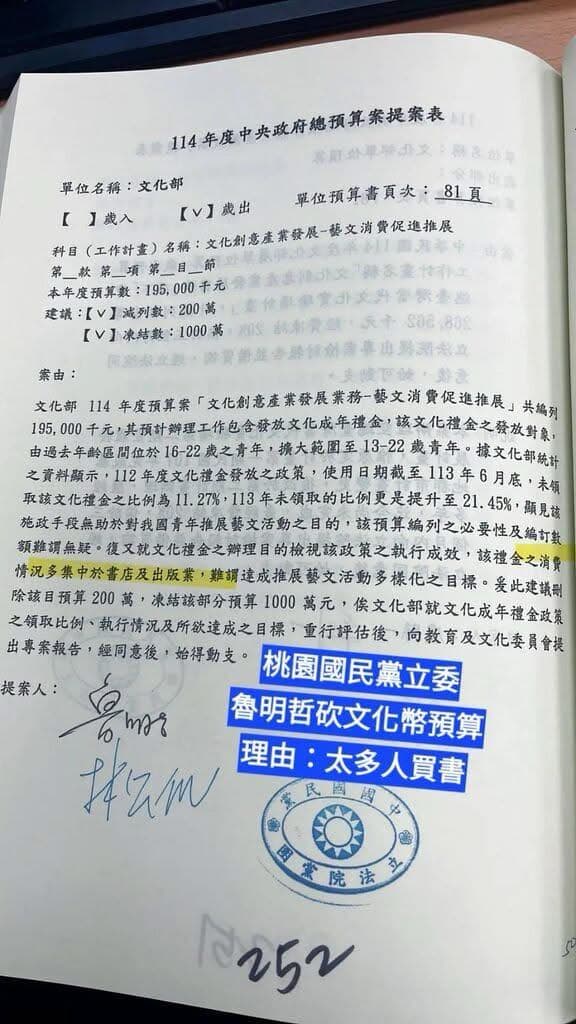 114年度中央政府總預算案提案表
單位名稱：文化部
單位預算書頁次：81頁
【 】歲入 【V】歲出
科目（工作計畫）名稱：文化創意產業發展-藝文消費促進推展
第__款 第__項 第__目__節
本年度預算數：195,000千元
建議：【V】減列數：200萬
【V】凍結數：1000萬
案由：
文化部 114 年度預算案「文化創意產業發展業務-藝文消費促進推展」共編列
195,000千元，其預計辦理工作包含發放文化成年禮金，該文化禮金之發放對象，
由過去年齡區間位於16-22歲之青年，擴大範圍至13-22歲青年。據文化部統計
之資料顯示，112年度文化禮金發放之政策，使用日期截至113年6月底，未領
取該文化禮金之比例為11.27%，113年未領取的比例更是提升至21.45%，顯見該
施政手段無助於對我國青年推展藝文活動之目的，該預算編列之必要性及編訂數
額難謂無疑。復又就文化禮金之辦理目的檢視該政策之執行成效，該禮金之消費
情況多集中於書店及出版業，難謂達成推展藝文活動多樣化之目標。爰此建議刪
除該目預算200萬，凍結該部分預算1000萬元，俟文化部就文化成年禮金政策
之領取比例、執行情況及所欲達成之目標，重行評估後，向教育及文化委員會提
出專案報告，經同意後，始得動支。
提案人：
魯明哲
桃園國民黨立委
魯明哲砍文化幣預算
理由：太多人買書
中國國民黨
立法院黨團
252